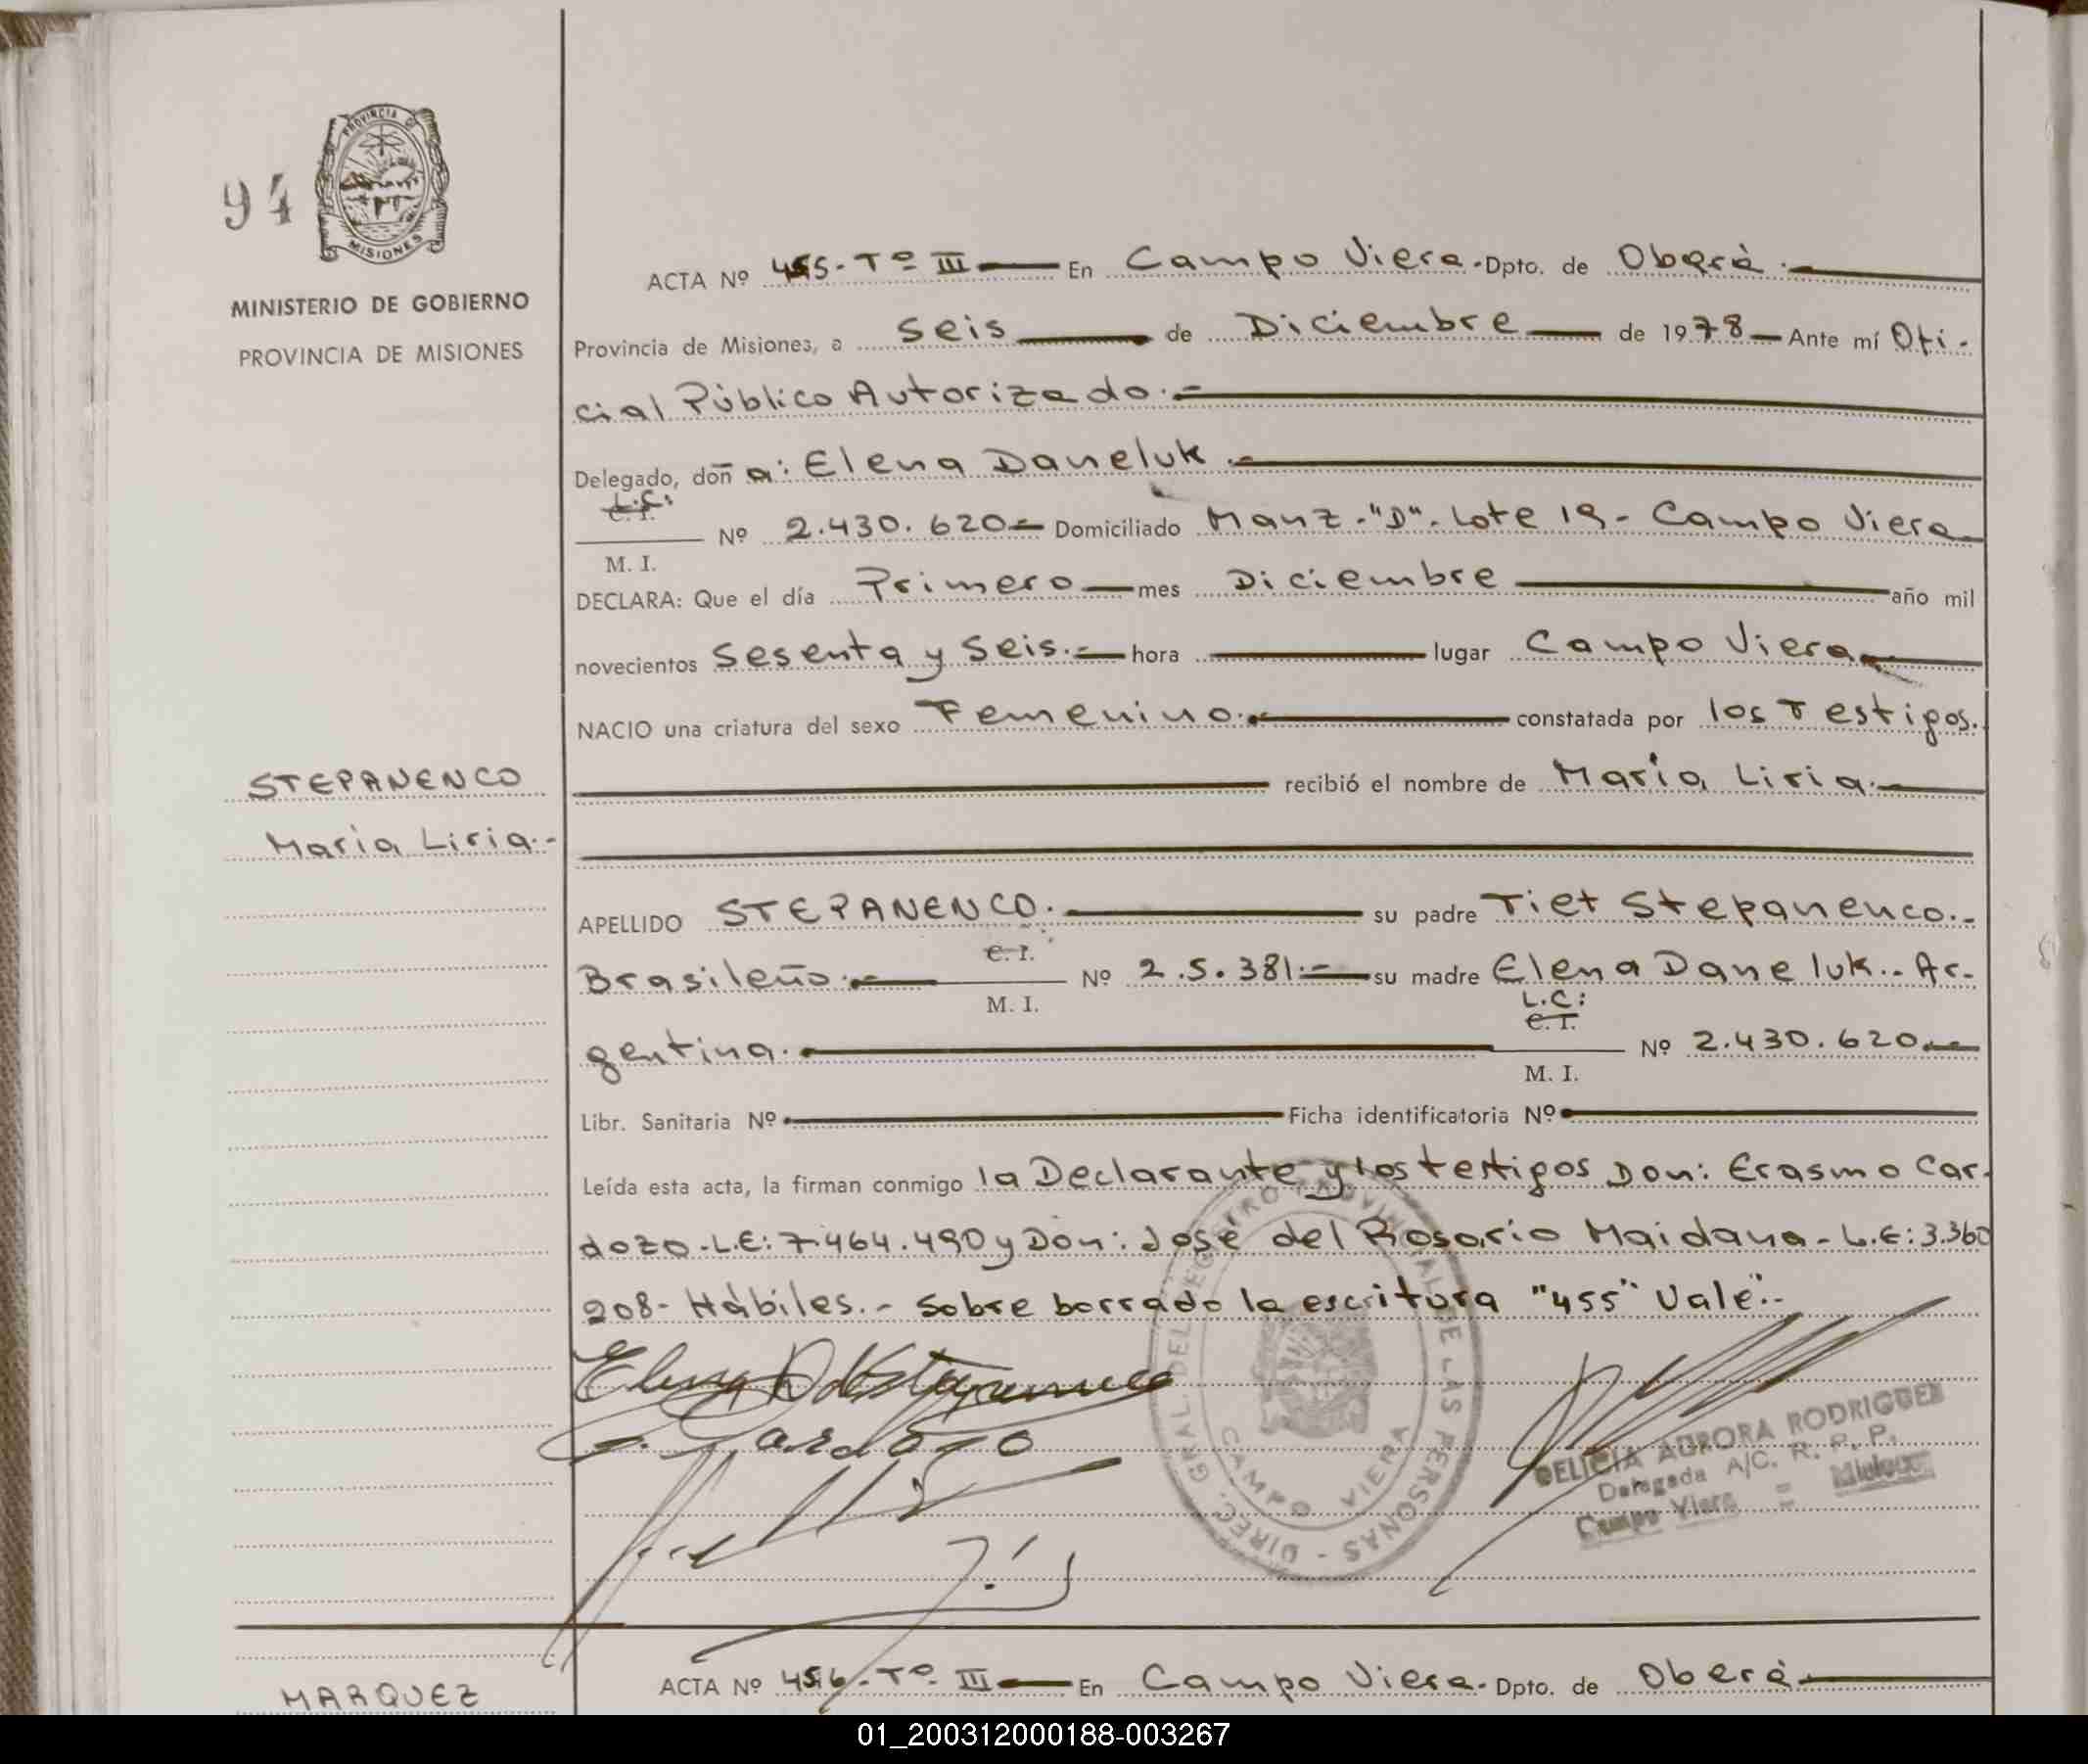 94
PROVINCIA DE
MISIONES
MINISTERIO DE GOBIERNO
PROVINCIA DE MISIONES
ACTA Nº 455-Tº III — En Campo Viera. Dpto. de Oberá.-
Provincia de Misiones, a Seis — de Diciembre — de 1978 — Ante mí Ofi-
cial Público Autorizado.-
Delegado, doña: Elena Daneluk.-
L.C:
C. I.
M. I.
Nº 2.430.620- Domiciliado Manz-"D"-Lote 19- Campo Viera
DECLARA: Que el día Primero — mes Diciembre — año mil
novecientos Sesenta y Seis.- hora — lugar Campo Viera
NACIO una criatura del sexo Femenino.- constatada por los Testigos.
recibió el nombre de María Liria.-
STEPANENCO
María Liria.-
APELLIDO STEPANENCO.- su padre Tiet Stepanenco.-
Brasileño.- C. I. M. I. Nº 2.5.381.- su madre Elena Daneluk.. Ar-
gentina.- L.C: C. I. M. I. Nº 2.430.620.-
Libr. Sanitaria Nº — Ficha identificatoria Nº
Leída esta acta, la firman conmigo la Declarante y los testigos Don: Erasmo Car-
dozo-L.E: 7.464.490 y Don: José del Rosario Maidana- L.E: 3.360
208- Hábiles.- Sobre borrado la escritura "455" Vale.-
Cardozo
DIREC. GRAL. DEL REGISTRO PROVINCIAL DE LAS PERSONAS -
CAMPO VIERA
DELICIA AURORA RODRIGUEZ
Delegada A/C. R. P. P.
Campo Viera = Misiones
MARQUEZ
ACTA Nº 456-Tº III — En Campo Viera. Dpto. de Oberá
01_200312000188-003267